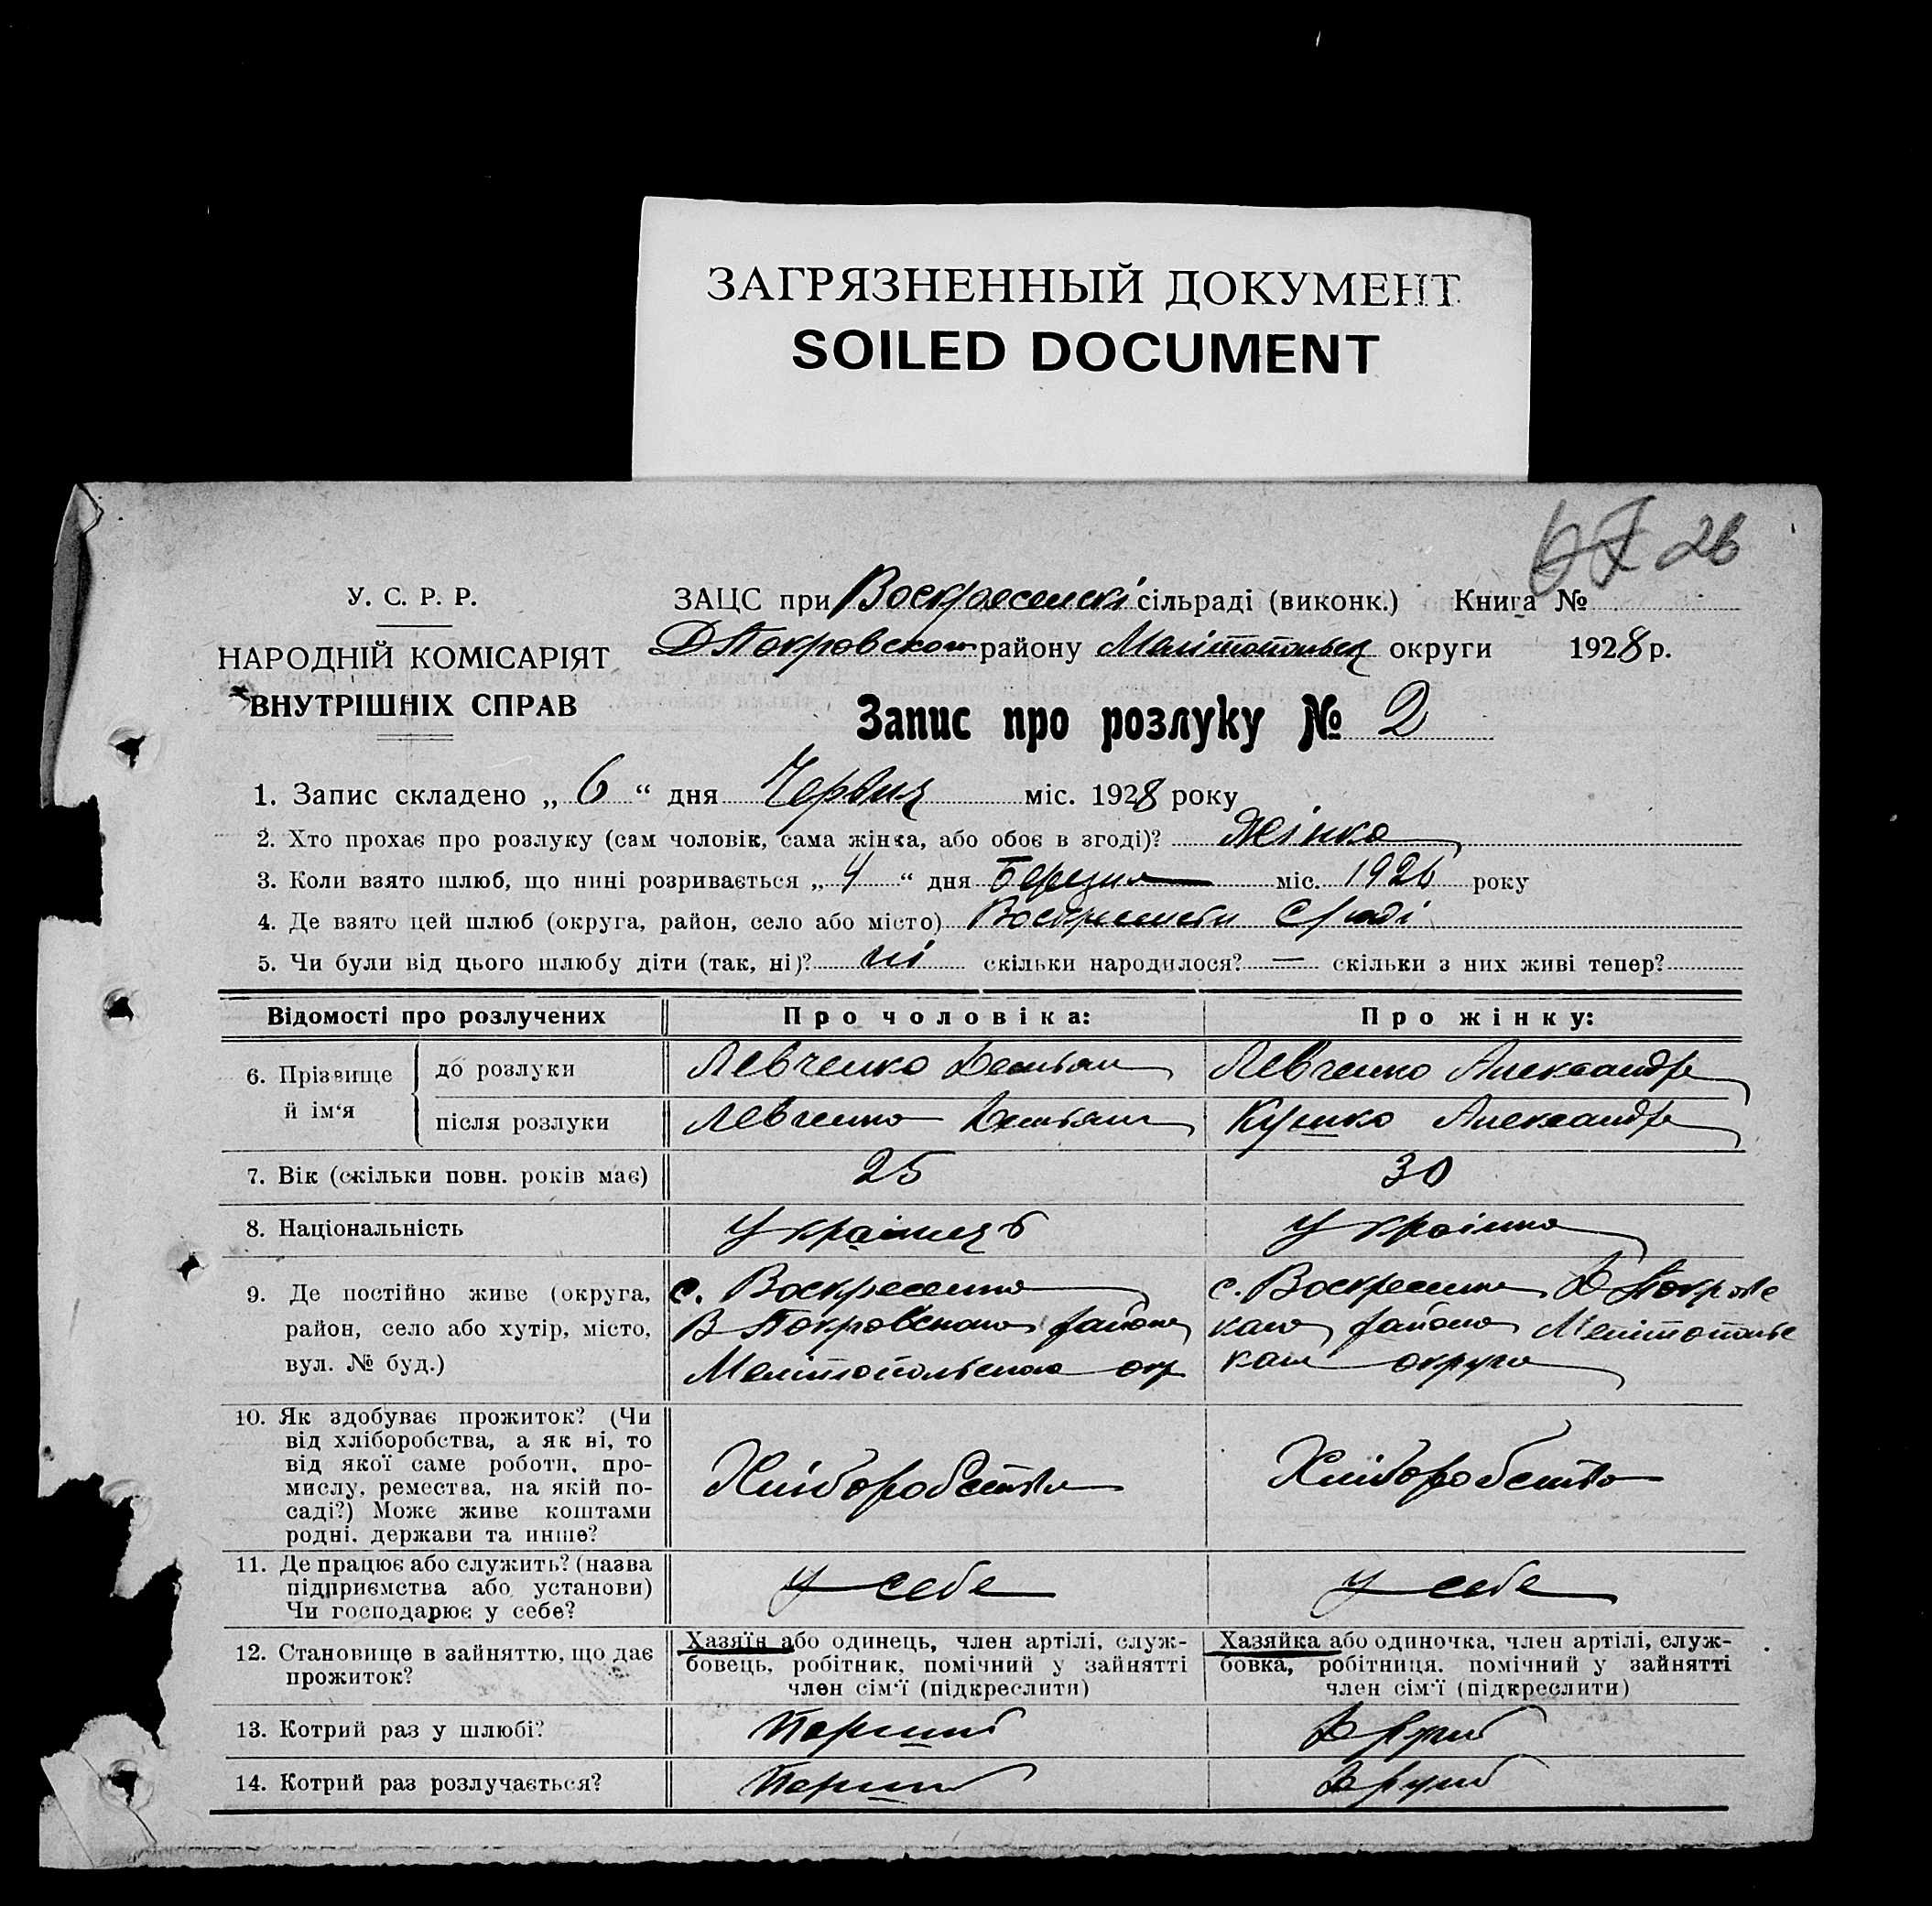 ЗАГРЯЗНЕННЫЙ ДОКУМЕНТ
SOILED DOCUMENT
67 26
У. С. Р. Р.
НАРОДНІЙ КОМІСАРІЯТ
ВНУТРІШНІХ СПРАВ
ЗАЦС при сільраді (виконк.) Книга №
району округи 1928 р.
Запис про розлуку № 2
1. Запис складено „ 6 “ дня Червня міс. 1928 року
2. Хто прохає про розлуку (сам чоловік, сама жінка, або обоє в згоді)? Жінка
3. Коли взято шлюб, що нині розривається „ 4 “ дня Березня міс. 1926 року
4. Де взято цей шлюб (округа, район, село або місто)
5. Чи були від цього шлюбу діти (так, ні)? ні скільки народилося? — скільки з них живі тепер?
Відомості про розлучених Про чоловіка: Про жінку:
6. Прізвище й ім‘я
до розлуки Левченко Демьян Левченко Александра
після розлуки Левченко Демьян Александра
7. Вік (скільки повн. років має) 25 30
8. Національність Українець Українка
9. Де постійно живе (округа,
район, село або хутір, місто,
вул. № буд.)
с. Воскресенка
Покровского району
Мелітопольскои окр
с. Воскресенка Д Покровс
кого району Мелітопольс
кои округи
10. Як здобуває прожиток? (Чи
від хліборобства, а як ні, то
від якої саме роботи, про-
мислу, ремества, на якій по-
саді?) Може живе коштами
родні, держави та инше?
Хліборобство Хліборобство
11. Де працює або служить? (назва
підприємства або установи)
Чи господарює у себе?
у себе у себе
12. Становище в зайняттю, що дає
прожиток?
Хазяїн або одинець, член артілі, служ-
бовець, робітник, помічний у зайнятті
член сім‘ї (підкреслити)
Хазяйка або одиночка, член артілі, служ-
бовка, робітниця, помічний у зайнятті
член сім‘ї (підкреслити)
13. Котрий раз у шлюбі? Перший Другий
14. Котрий раз розлучається? Перший Другий